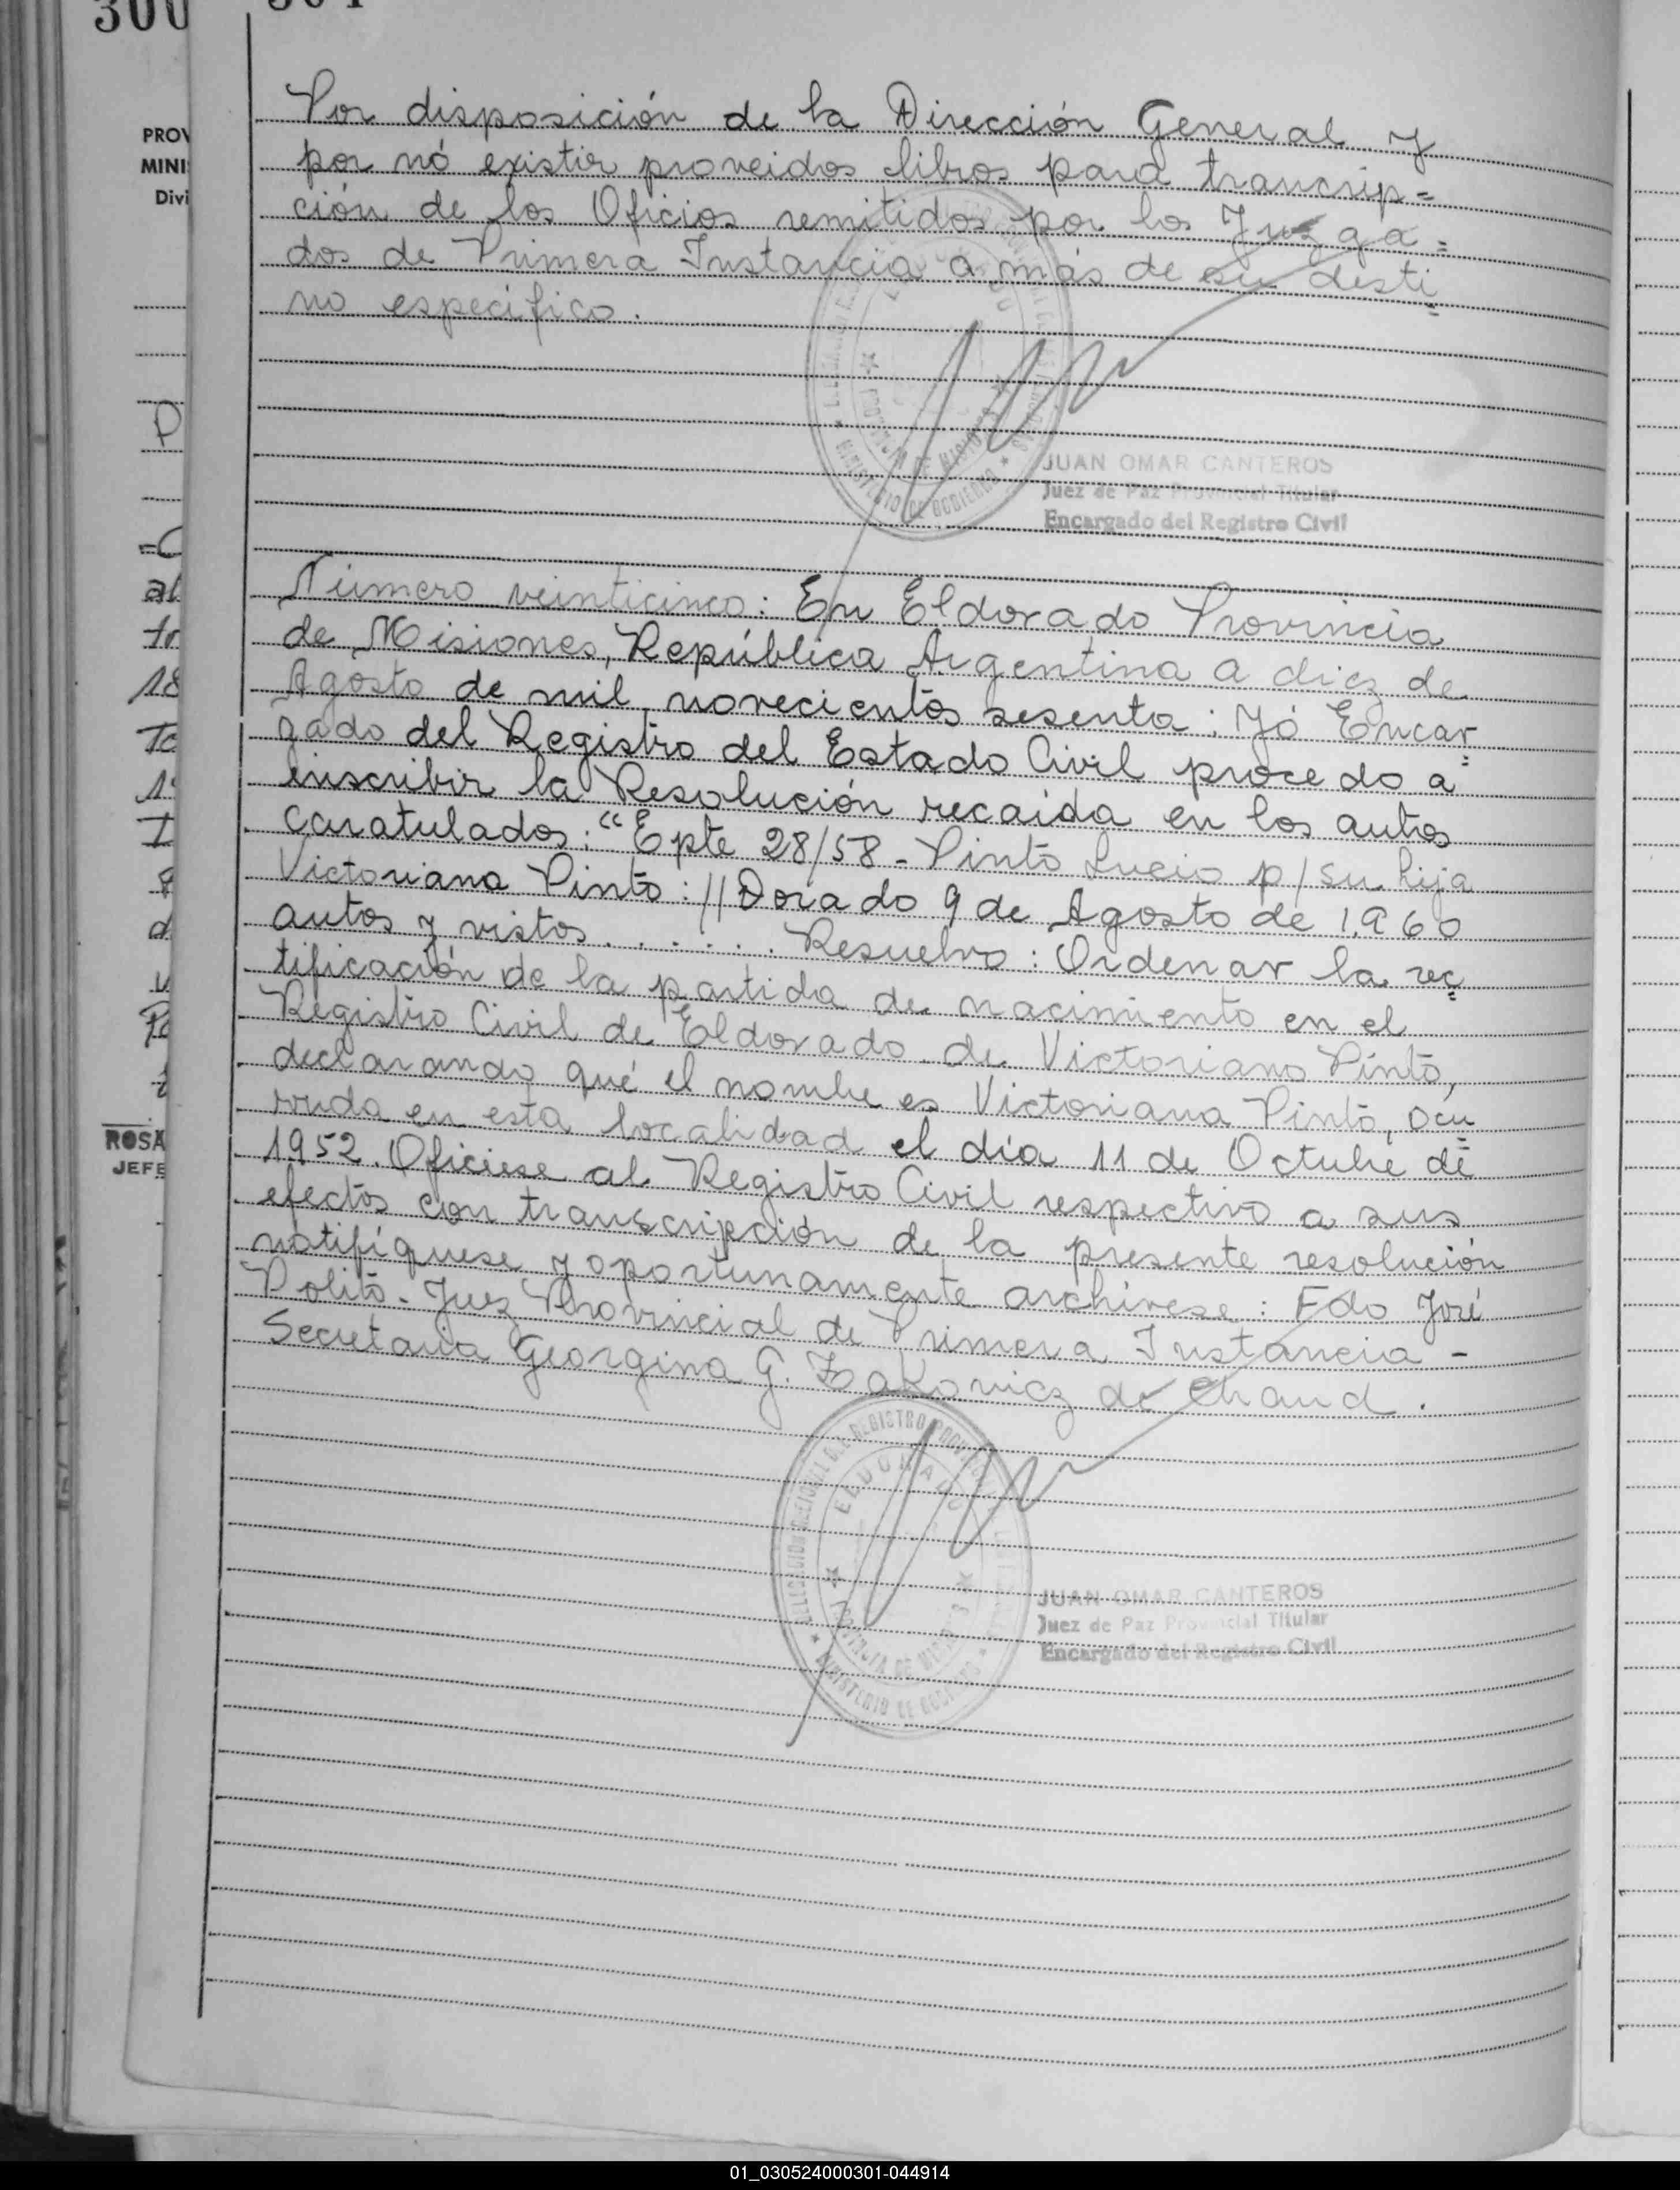 300
301
PROV
MINI
Divi
Por disposición de la Dirección General y
por nó existir proveidos libros para trancrip=
ción de los Oficios remitidos por los Juzga=
dos de Primera Instancia a más de su desti=
no especifico.
JUAN OMAR CANTEROS
Juez de Paz Provincial Titular
Encargado del Registro Civil
Número veinticinco: En Eldorado Provincia
de Misiones, República Argentina a diez de
Agosto de mil novecientos sesenta: Yó Encar=
gado del Registro del Estado Civil procedo a
inscribir la Resolución recaida en los autos
caratulados: "Epte 28/58 - Pinto Lucio p/su hija
Victoriana Pinto: //Dorado 9 de Agosto de 1.960
autos y vistos....... Resuelvo: Ordenar la rec=
tificación de la partida de nacimiento en el
Registro Civil de Eldorado de Victoriano Pinto,
declarando qué el nombre es Victoriana Pinto, ocu=
rrida en esta localidad el día 11 de Octubre de
1952. Oficiese al Registro Civil respectivo a sus
efectos con transcripción de la presente resolución
notifíquese y oportunamente archívese: Fdo José
Polito - Juez Provincial de Primera Instancia -
Secretaria Georgina G. Zakovicz de Chaud.
ELDORADO
PROVINCIA DE MISIONES
MINISTERIO DE GOBIERNO
JUAN OMAR CANTEROS
Juez de Paz Provincial Titular
Encargado del Registro Civil
ROSA
JEFE
01_030524000301-044914